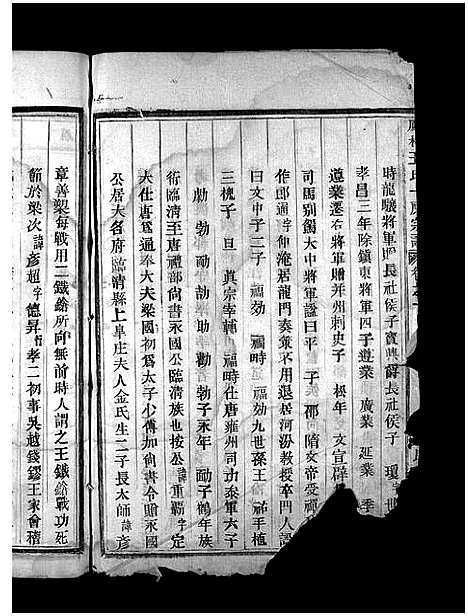 時龍驤將軍賜長社侯子寶興爵長社侯子 瓊 世
孝昌三年除鎮東將軍四子遵業 廣業 延業 季
遵業遷右將軍贈并州刺史子 松年 文宣辟
司馬別賜大中將軍諡曰平 子 邵 隋文帝受禪
作郎通字仲淹居龍門奏策不用退居河汾教授卒門人謚
曰文中子二子 福劾 福時 福劾九世孫王祜手植
三槐子 旦 真宗宰輔 福時仕唐雍州司功叅軍六子
勮 勃 勔 助 劼 勸 勃子永年 勔子鶴年族
衍臨清至唐禮部尚書永國公臨清族也按公 諱重霸字定
大仕唐爲通奉大夫梁國初爲太子少傅加尚書令贈永國
公居大名府臨清縣上阜庄夫人金氏生二子長太師 諱彥
章善槊每戰用二鐵鎗所向無前時人謂之王鐵鎗戰功死
節於梁次 諱彥超 字德昇 孝二初事吳越錢鏐王家會稽